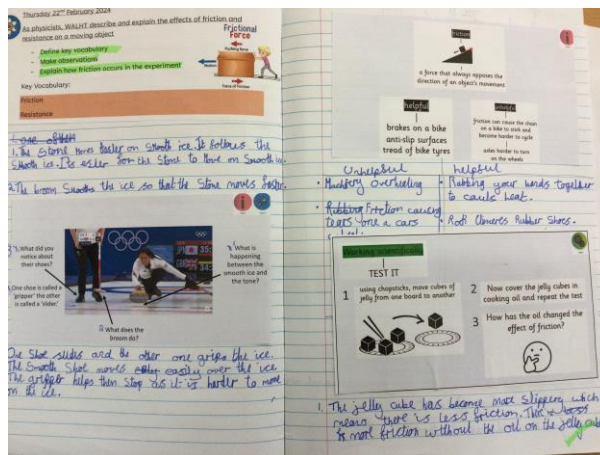 Thursday 22nd February 2024
As physicists, WALHT describe and explain the effects of friction and
resistance on a moving object
- Define key vocabulary
- Make observations
- Explain how friction occurs in the experiment
Frictional
Force
Pushing force
Motion
Force of friction
Key Vocabulary:
Friction
Resistance
1. The Stone moves faster on Smooth ice. It follows the
Smooth ice. It's easier for the Stone to move on Smooth ice.
2. The broom Smooths the ice so that the Stone moves faster.
What did you
notice about
their shoes?
One shoe is called a
'gripper' the other
is called a 'slider.'
What is
happening
between the
smooth ice and
the tone?
What does the
broom do?
One Shoe slides and the other one grips the ice.
The Smooth Shoe moves easily over the ice.
The gripper helps them Stop as it is harder to move
on the ice.
friction
a force that always opposes the
direction of an object's movement
helpful
brakes on a bike
anti-slip surfaces
tread of bike tyres
unhelpful
friction can cause the chain
on a bike to stick and
become harder to cycle
makes harder to turn
on the wheels
Unhelpful
helpful
overheating
Rubbing your hands together
to heat.
Friction causing
one a cars
Rock Rubber Shoes.
Working scientifically
TEST IT
1 using chopsticks, move cubes of
jelly from one board to another
2 Now cover the jelly cubes in
cooking oil and repeat the test
3 How has the oil changed the
effect of friction?
1. The jelly cube has become more Slippery which
means there is less friction. There
is more friction without the oil on the jelly cube